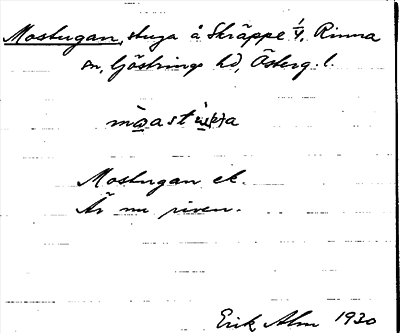 Mostugan, stuga å Skräppe 1/4, Rinna
sn, Göstrings hd, Österg. l.
Mostugan ek.
Är nu riven.
Erik Alm 1930